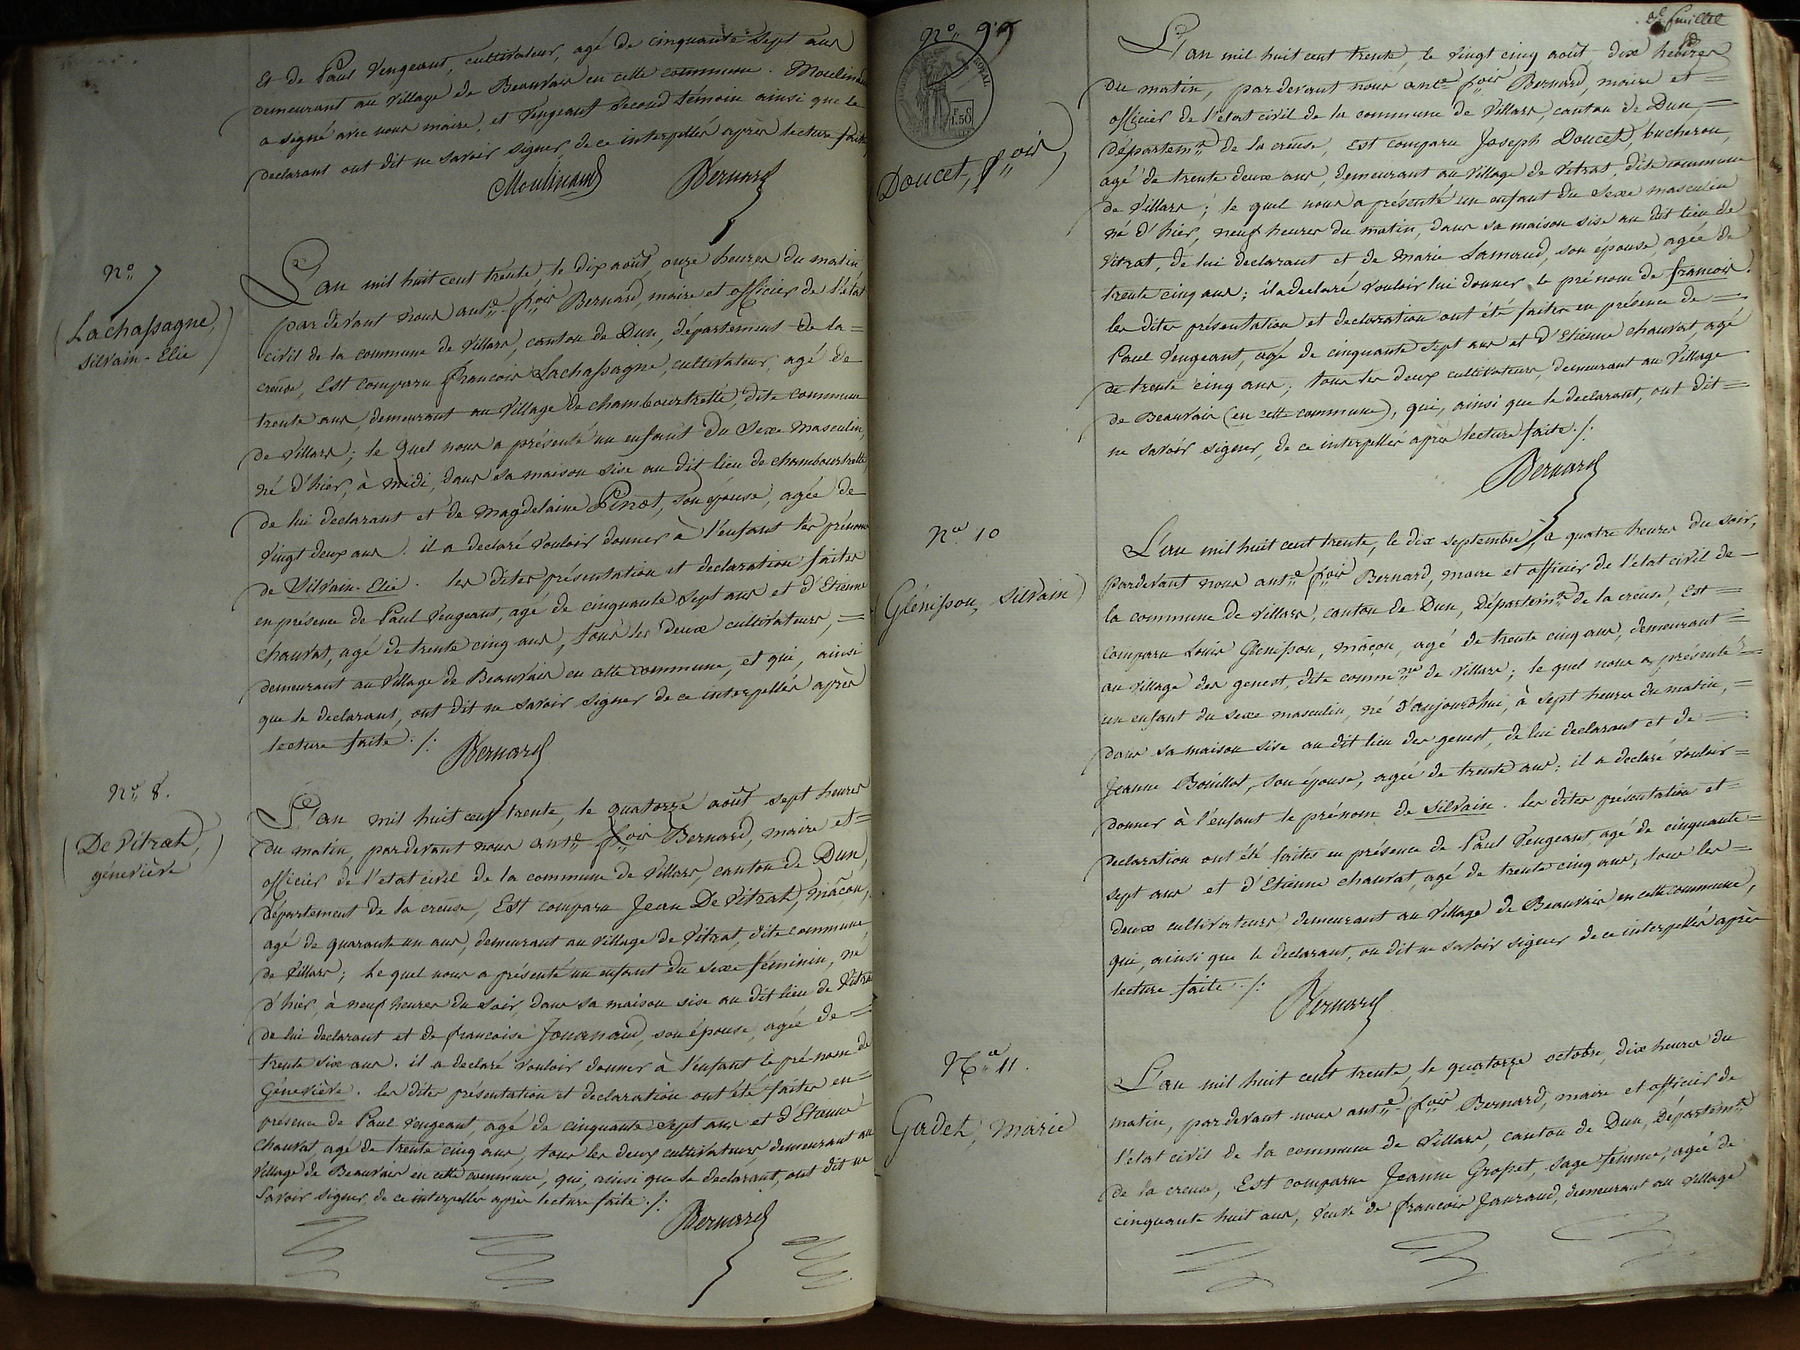 Et de Paul Vengeant, cultivateur, agé de cinquante sept ans
demeurant au village de Beauvais en cette commune. Moulinaud
a signé avec nous maire, et Vengeant second témoin ainsi que le
declarant ont dit ne savoir signer de ce interpellés après lecture faite
Moulinaud Bernard
N° 7
Lachassagne,
silvain-Elie
L'an mil huit cent trente, le dix août, onze heures du matin
pardevant nous ant.ne f.ois Bernard, maire et officier de l'état
civil de la commune de Villars, canton de Dun, département de la =
creuse, Est comparu francois Lachassagne, cultivateur, agé de
trente ans, demeurant au village de chambourtrelle, dite commune
de Villars; le quel nous a présenté un enfant du sexe masculin,
né d'hier, à midi, dans sa maison sise au dit lieu de chambourtrelle
de lui declarant et de magdelaine Pinot, son épouse, agée de
vingt deux ans. il a declaré vouloir donner à l'enfant les prénoms
de Silvain-Elie. les dites présentation et declaration faites
en présence de Paul Vengeant, agé de cinquante sept ans et d'Etienne
chauvat, agé de trente cinq ans, tous les deux cultivateurs, =
demeurant au village de Beauvais en cette commune, et qui, ainsi
que le declarant, ont dit ne savoir signer de ce interpellés après
lecture faite ./.
Bernard
N° 8.
De Vitrat,
géneviève
L'an mil huit cent trente, le quatorze août sept heures
du matin, pardevant nous ant.ne f.ois Bernard, maire et =
officier de l'etat civil de la commune de Villars, canton de Dun,
département de la creuse, Est comparu Jean De Vitrat, maçon,
agé de quarante un ans, demeurant au village de Vitrat, dite commune
de Villars; le quel nous a présenté un enfant du sexe féminin, né
d'hier, à neuf heures du soir, dans sa maison sise au dit lieu de Vitrat
de lui declarant et de francoise Journaud, son épouse, agée de =
trente six ans. il a declaré vouloir donner à l'enfant le prénom de
Géneviève. les dites présentation et declaration ont été faites en =
présence de Paul Vengeant, agé de cinquante sept ans et d'Etienne
chauvat, agé de trente cinq ans, tous les deux cultivateurs demeurant au
village de Beauvais en cette commune, qui, ainsi que le declarant, ont dit ne
savoir signer de ce interpellés après lecture faite ./.
Bernard
2e feuillet
N° 9
Doucet, f.ois
L'an mil huit cent trente, le vingt cinq août, dix heures
du matin, pardevant nous ant.ne f.ois Bernard, maire et =
officier de l'etat civil de la commune de Villars, canton de Dun, =
départem.t de la creuse, est comparu Joseph Doucet, bucheron,
agé de trente deux ans, demeurant au village de Vitrat, dite commune
de Villars; le quel nous a présenté un enfant du sexe masculin
né d'hier, neuf heures du matin, dans sa maison sise au dit lieu de
Vitrat, de lui declarant et de Marie Lamaud, son épouse, agée de
trente cinq ans; il a declaré vouloir lui donner le prénom de francois.
les dites présentation et declaration ont été faites en présence de =
Paul Vengeant, agé de cinquante sept ans et d'Etienne chauvat, agé
de trente cinq ans; tous les deux cultivateurs, demeurant au village
de Beauvais (en cette commune), qui, ainsi que le declarant, ont dit =
ne savoir signer, de ce interpellés après lecture faite ./.
Bernard
N° 10
Glénisson, silvain
L'an mil huit cent trente, le dix septembre, à quatre heures du soir,
pardevant nous ant.ne f.ois Bernard, maire et officier de l'état civil de
la commune de Villars, canton de Dun, départem.t de la creuse, Est =
comparu Louis Glénisson, maçon, agé de trente cinq ans, demeurant =
au village des genest, dite comm.ne de Villars; le quel nous a présenté =
un enfant du sexe masculin, né d'aujourd'hui, à sept heures du matin, =
dans sa maison sise au dit lieu des genest, de lui declarant et de =
Jeanne Bouillot, son épouse, agée de trente ans: il a declaré vouloir =
donner à l'enfant le prénom de silvain. les dites présentation et =
declaration ont été faites en présence de Paul Vengeant, agé de cinquante =
sept ans et d'Etienne chauvat, agé de trente cinq ans, tous les =
deux cultivateurs, demeurant au village de Beauvais en cette commune,
qui, ainsi que le declarant, on dit ne savoir signer de ce interpellés après
lecture faite ./.
Bernard
N° 11.
Gadet, marie
L'an mil huit cent trente, le quatorze octobre, dix heures du
matin, pardevant nous ant.ne f.ois Bernard, maire et officier de
l'état civil de la commune de Villars, canton de Dun, départem.t
de la creuse, Est comparue Jeanne Grosset, sage femme, agée de
cinquante huit ans, veuve de francois Jauraud, demeurant au village